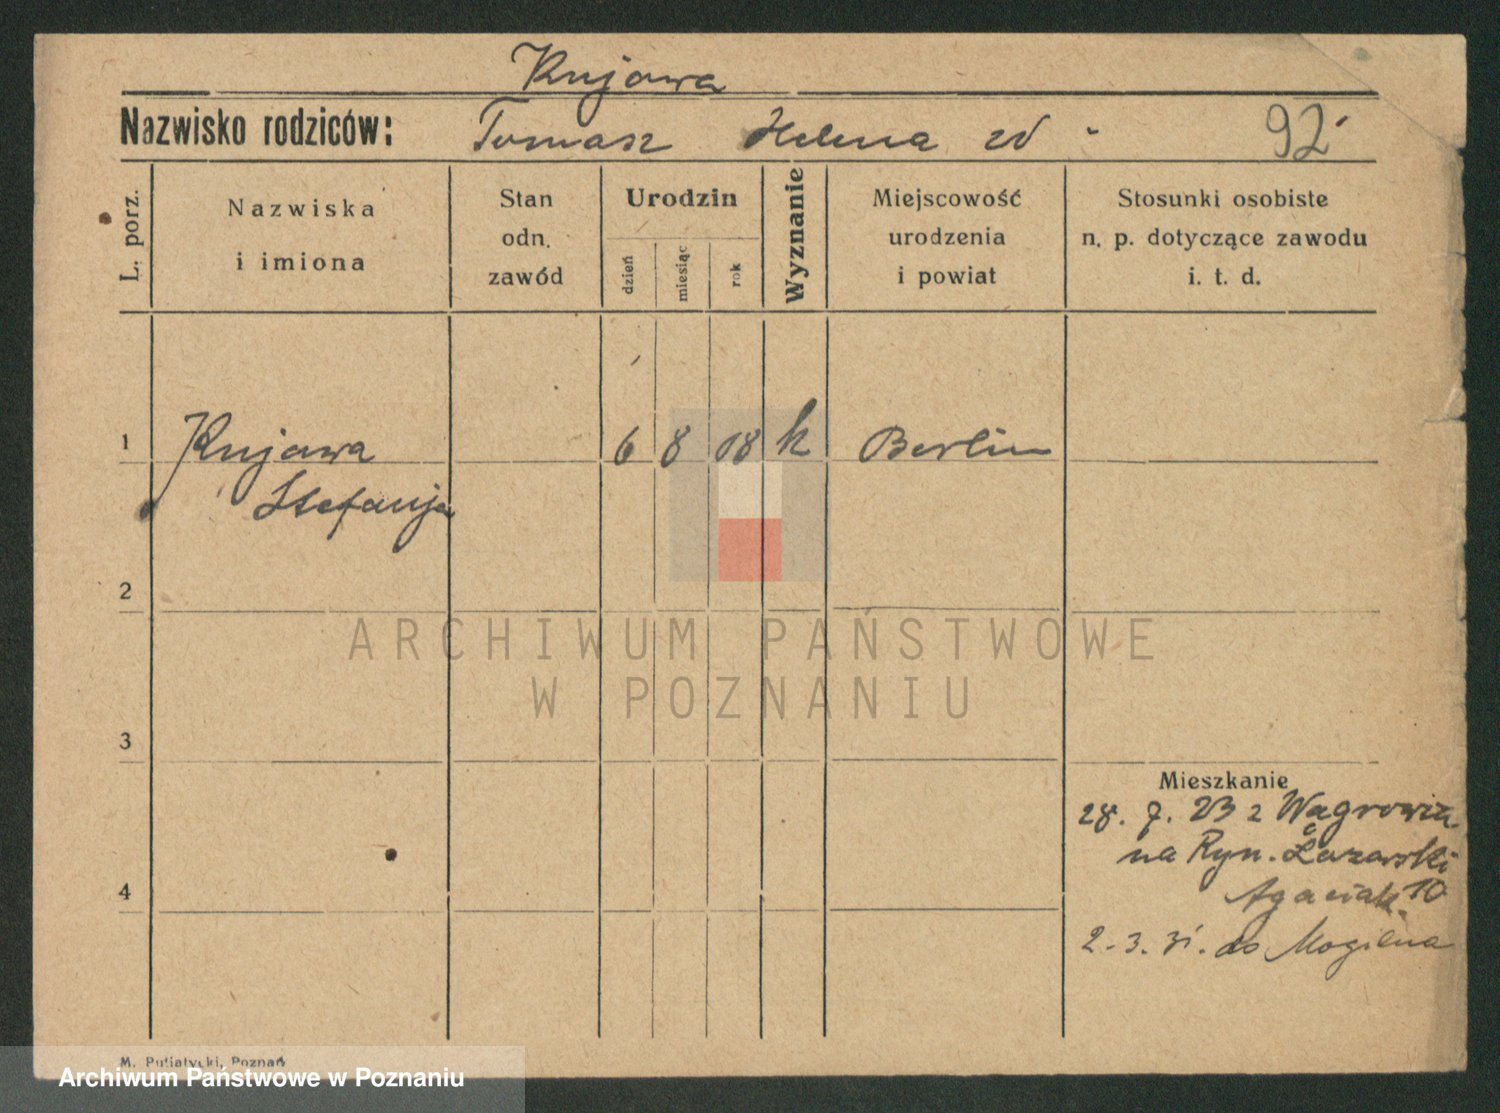 Kujawa
Nazwisko rodziców: Tomasz Helena zd - 92
L. porz.
Nazwiska
i imiona
Stan
odn.
zawód
Urodzin
dzień
miesiąc
rok
Wyznanie
Miejscowość
urodzenia
i powiat
Stosunki osobiste
n. p. dotyczące zawodu
i. t. d.
1 Kujawa 6 8 08 k Berlin
Stefanja
2
3
4
Mieszkanie
28. 7. 23 z
na Ryn. Łazarski
10
2. 3. 31. do Mogilna
ARCHIWUM PAŃSTWOWE
W POZNANIU
M. Putiatycki, Poznań
Archiwum Państwowe w Poznaniu